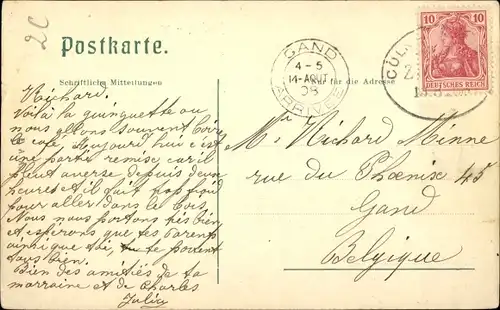 2C
Postkarte.
Schriftliche Mitteilungen
Nur für die Adresse
GAND
4-5
14-AOUT
08
ARRIVEE
10 10
DEUTSCHES REICH
CÖL
Richard.
Voilà la guinguette ou
nous allons souvent boire
le café Aujourd'hui c'est
une partie remise car il
pleut averse depuis deux
heures et il fait trop froid
pour aller dans le bois.
Nous nous portons très bien
et espérons que tes parents
ainsi que toi, te portent
tous bien.
Bien des amitiés de ta
marraine et de Charles
Julia
Mr Richard Minne
rue du Phoenix 45
Gand
Belgique